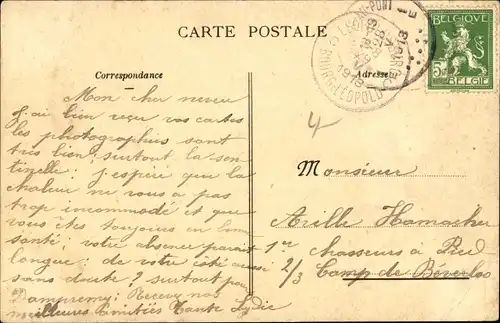 CARTE POSTALE
BELGIQUE
5
BELGIË
BOURG-LÉOPOLD
1913
Correspondance
Adresse
Mon cher neveu
j'ai bien reçu vos cartes
les photographies sont
très bien surtout la sen
tinelle; j'espère que la
chaleur ne vous a pas
trop incommodé et que
vous êtes toujours en bonne
santé; votre absence parait
longue; de votre côté aussi
sans doute? surtout pour
Dampremy. Recevez nos
meilleures amitiés Tante Lydie
4
Monsieur
Arille Hamacher
1er chasseurs à Pied
2/3 Camp de Beverloo